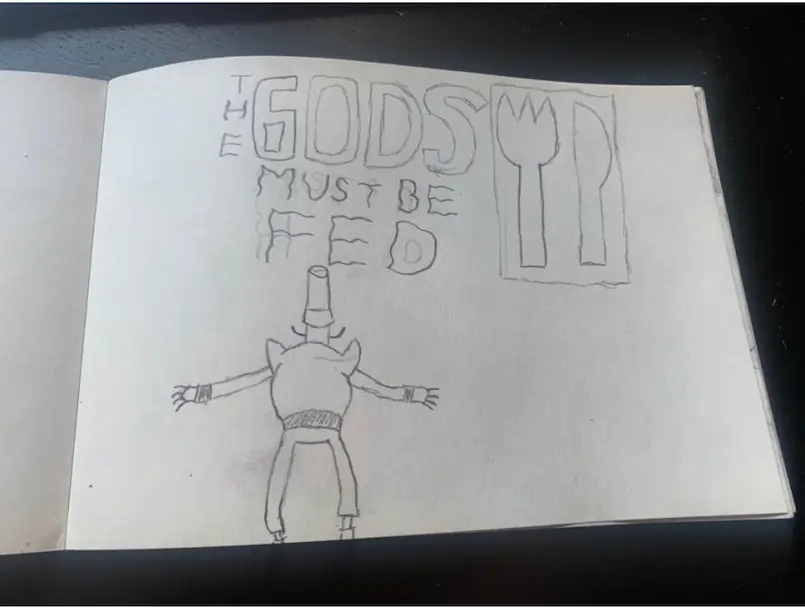 THE GODS
MUST BE
FED